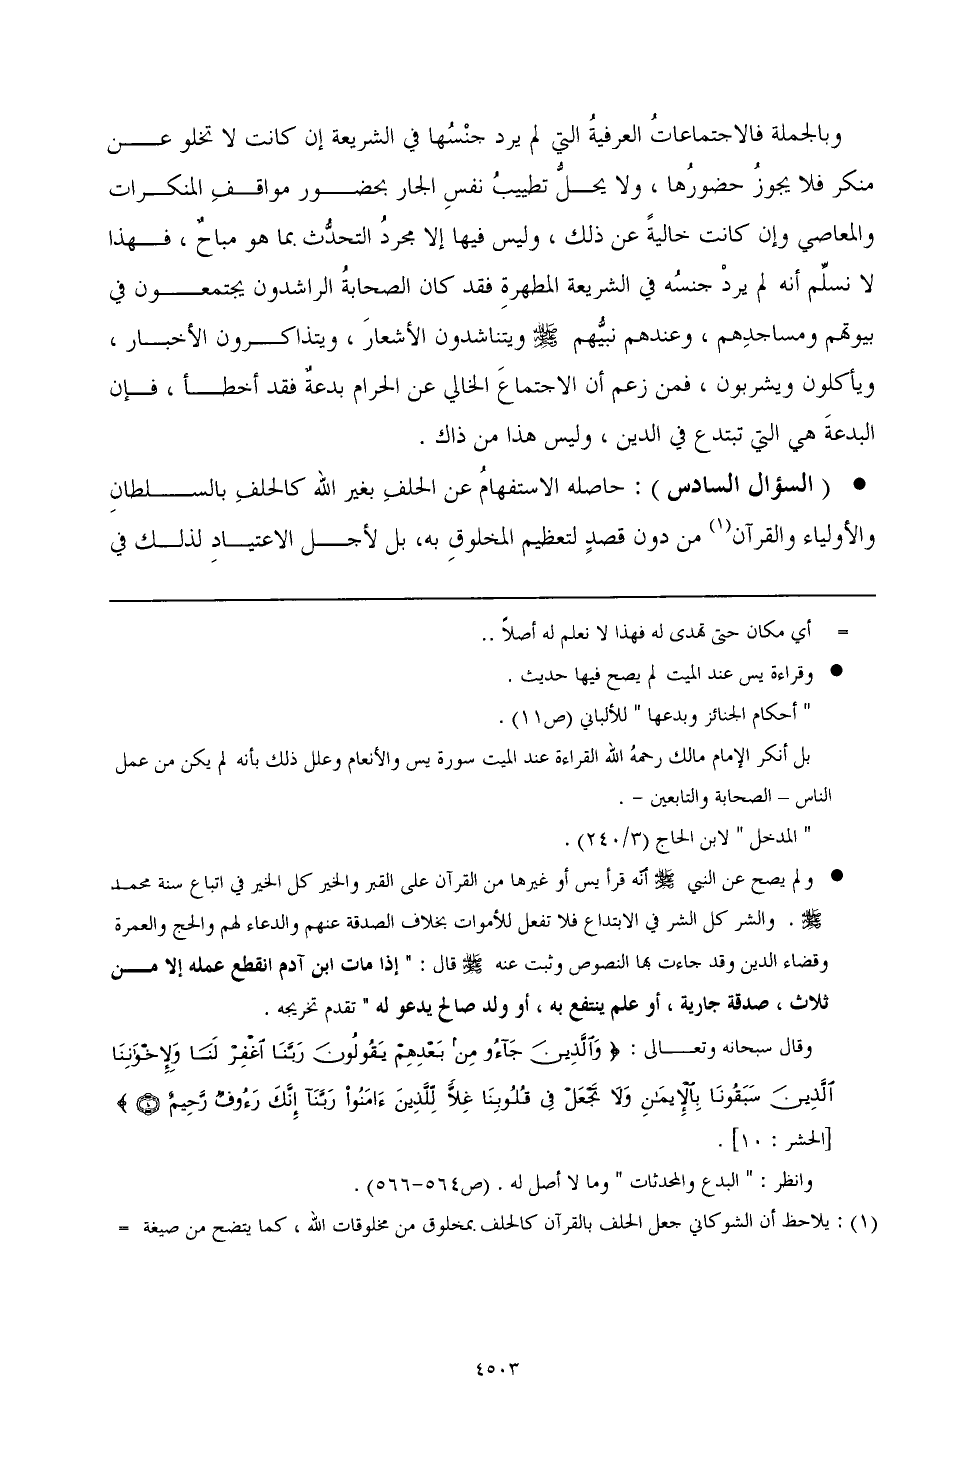 وبالجملة فالاجتماعاتُ العرفيةُ التي لم يرد جنْسُها في الشريعة إن كانت لا تخلو عن
منكر فلا يجوزُ حضورُها ، ولا يحلُّ تطييبُ نفسِ الجار بحضور مواقفِ المنكرات
والمعاصي وإن كانت خاليةً عن ذلك ، وليس فيها إلا مجردُ التحدُّث بما هو مباحٌ ، فهذا
لا نسلِّم أنه لم يردْ جنسُه في الشريعة المطهرةِ فقد كان الصحابةُ الراشدون يجتمعون في
بيوتهم ومساجدِهم ، وعندهم نبيُّهم ﷺ ويتناشدون الأشعارَ ، ويتذاكرون الأخبار ،
ويأكلون ويشربون ، فمن زعم أن الاجتماعَ الخالي عن الحرام بدعةٌ فقد أخطأ ، فإن
البدعةَ هي التي تبتدع في الدين ، وليس هذا من ذاك .
● ( السؤال السادس ) : حاصله الاستفهامُ عن الحلفِ بغير الله كالحلفِ بالسلطانِ
والأولياء والقرآن(١) من دون قصدٍ لتعظيم المخلوقِ به، بل لأجل الاعتيادِ لذلك في
= أي مكان حتى تهدى له فهذا لا نعلم له أصلاً ..
● وقراءة يس عند الميت لم يصح فيها حديث .
" أحكام الجنائز وبدعها " للألباني (ص١١) .
بل أنكر الإمام مالك رحمهُ الله القراءة عند الميت سورة يس والأنعام وعلل ذلك بأنه لم يكن من عمل
الناس – الصحابة والتابعين - .
" المدخل " لابن الحاج (٢٤٠/٣) .
● ولم يصح عن النبي ﷺ أنّه قرأ يس أو غيرها من القرآن على القبر والخير كل الخير في اتباع سنة محمد
ﷺ . والشر كل الشر في الابتداع فلا تفعل للأموات بخلاف الصدقة عنهم والدعاء لهم والحج والعمرة
وقضاء الدين وقد جاءت بها النصوص وثبت عنه ﷺ قال : " إذا مات ابن آدم انقطع عمله إلا من
ثلاث ، صدقة جارية ، أو علم ينتفع به ، أو ولد صالح يدعو له " تقدم تخريجه .
وقال سبحانه وتعالى : ﴿ وَٱلَّذِينَ جَآءُو مِنۢ بَعْدِهِمْ يَقُولُونَ رَبَّنَا ٱغْفِرْ لَنَا وَلِإِخْوَٰنِنَا
ٱلَّذِينَ سَبَقُونَا بِٱلْإِيمَٰنِ وَلَا تَجْعَلْ فِى قُلُوبِنَا غِلًّا لِّلَّذِينَ ءَامَنُوا۟ رَبَّنَآ إِنَّكَ رَءُوفٌ رَّحِيمٌ ١٠ ﴾
[الحشر : ١٠] .
وانظر : " البدع والمحدثات " وما لا أصل له . (ص٥٦٤-٥٦٦) .
(١) : يلاحظ أن الشوكاني جعل الحلف بالقرآن كالحلف بمخلوق من مخلوقات الله ، كما يتضح من صيغة =
٤٥٠٣